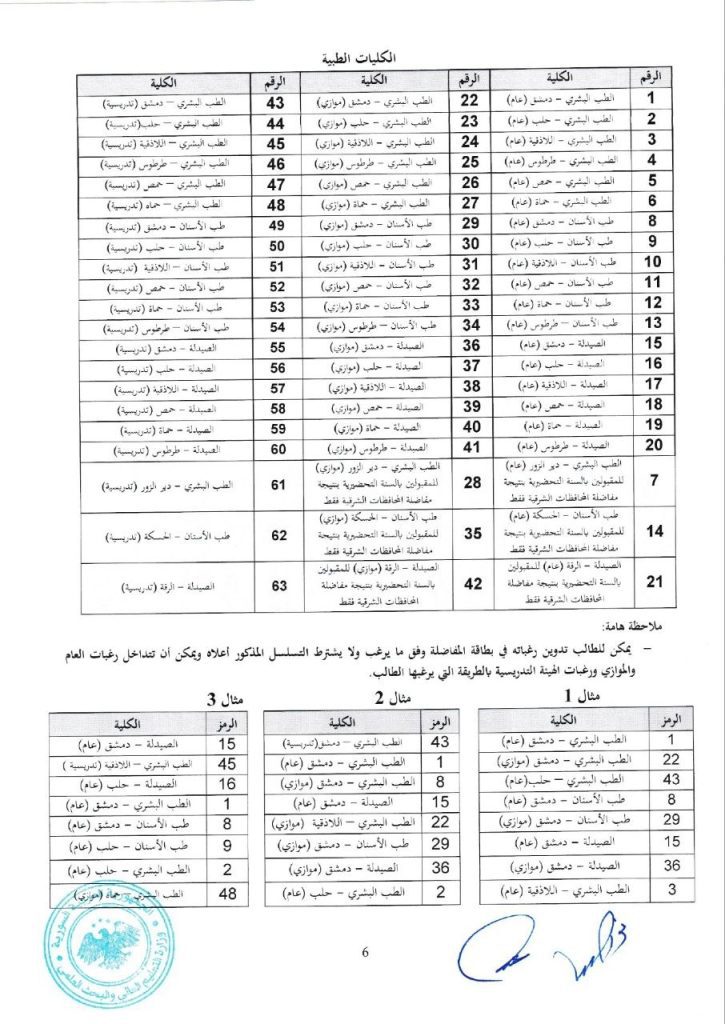 الكليات الطبية
الرقم الكلية الرقم الكلية الرقم الكلية
1 الطب البشري – دمشق (عام) 22 الطب البشري – دمشق (موازي) 43 الطب البشري – دمشق (تدريسية)
2 الطب البشري – حلب (عام) 23 الطب البشري – حلب (موازي) 44 الطب البشري – حلب(تدريسية)
3 الطب البشري – اللاذقية (عام) 24 الطب البشري – اللاذقية (موازي) 45 الطب البشري – اللاذقية (تدريسية)
4 الطب البشري – طرطوس (عام) 25 الطب البشري – طرطوس (موازي) 46 الطب البشري – طرطوس (تدريسية)
5 الطب البشري – حمص (عام) 26 الطب البشري – حمص (موازي) 47 الطب البشري – حمص (تدريسية)
6 الطب البشري – حماة (عام) 27 الطب البشري – حماة (موازي) 48 الطب البشري – حماه (تدريسية)
8 طب الأسنان – دمشق (عام) 29 طب الأسنان – دمشق (موازي) 49 طب الأسنان – دمشق (تدريسية)
9 طب الأسنان – حلب (عام) 30 طب الأسنان – حلب (موازي) 50 طب الأسنان – حلب (تدريسية)
10 طب الأسنان – اللاذقية (عام) 31 طب الأسنان – اللاذقية (موازي) 51 طب الأسنان – اللاذقية (تدريسية)
11 طب الأسنان – حمص (عام) 32 طب الأسنان – حمص (موازي) 52 طب الأسنان – حمص (تدريسية)
12 طب الأسنان – حماة (عام) 33 طب الأسنان – حماة (موازي) 53 طب الأسنان – حماة (تدريسية)
13 طب الأسنان – طرطوس (عام) 34 طب الأسنان – طرطوس (موازي) 54 طب الأسنان – طرطوس (تدريسية)
15 الصيدلة – دمشق (عام) 36 الصيدلة – دمشق (موازي) 55 الصيدلة – دمشق (تدريسية)
16 الصيدلة – حلب (عام) 37 الصيدلة – حلب (موازي) 56 الصيدلة – حلب (تدريسية)
17 الصيدلة – اللاذقية (عام) 38 الصيدلة – اللاذقية (موازي) 57 الصيدلة – اللاذقية (تدريسية)
18 الصيدلة – حمص (عام) 39 الصيدلة – حمص (موازي) 58 الصيدلة – حمص (تدريسية)
19 الصيدلة – حماة (عام) 40 الصيدلة – حماة (موازي) 59 الصيدلة – حماة (تدريسية)
20 الصيدلة – طرطوس (عام) 41 الصيدلة – طرطوس (موازي) 60 الصيدلة – طرطوس (تدريسية)
الطب البشري – دير الزور (عام) الطب البشري – دير الزور (موازي)
7 للمقبولين بالسنة التحضيرية بنتيجة 28 للمقبولين بالسنة التحضيرية بنتيجة 61 الطب البشري – دير الزور (تدريسية)
مفاضلة المحافظات الشرقية فقط مفاضلة المحافظات الشرقية فقط
طب الأسنان – الحسكة (عام) طب الأسنان – الحسكة (موازي)
14 للمقبولين بالسنة التحضيرية بنتيجة 35 للمقبولين بالسنة التحضيرية بنتيجة 62 طب الأسنان – الحسكة (تدريسية)
مفاضلة المحافظات الشرقية فقط مفاضلة المحافظات الشرقية فقط
الصيدلة – الرقة (عام) للمقبولين الصيدلة – الرقة (موازي) للمقبولين
21 بالسنة التحضيرية بنتيجة مفاضلة 42 بالسنة التحضيرية بنتيجة مفاضلة 63 الصيدلة – الرقة (تدريسية)
المحافظات الشرقية فقط المحافظات الشرقية فقط
ملاحظة هامة:
– يمكن للطالب تدوين رغباته في بطاقة المفاضلة وفق ما يرغب ولا يشترط التسلسل المذكور أعلاه ويمكن أن تتداخل رغبات العام
والموازي ورغبات الهيئة التدريسية بالطريقة التي يرغبها الطالب.
مثال 1
الرمز الكلية
1 الطب البشري – دمشق (عام)
22 الطب البشري – دمشق (موازي)
43 الطب البشري – حلب(عام)
8 طب الأسنان – دمشق (عام)
29 طب الأسنان – دمشق (موازي)
15 الصيدلة – دمشق (عام)
36 الصيدلة – دمشق (موازي)
3 الطب البشري – اللاذقية (عام)
مثال 2
الرمز الكلية
43 الطب البشري – دمشق(تدريسية)
1 الطب البشري – دمشق (عام)
8 الطب البشري – دمشق (موازي)
15 الصيدلة – دمشق (عام)
22 الطب البشري – اللاذقية (موازي)
29 طب الأسنان – دمشق (موازي)
36 الصيدلة – دمشق (موازي)
2 الطب البشري – حلب (عام)
مثال 3
الرمز الكلية
15 الصيدلة – دمشق (عام)
45 الطب البشري – اللاذقية (تدريسية )
16 الصيدلة – حلب (عام)
1 الطب البشري – دمشق (عام)
8 طب الأسنان – دمشق (عام)
9 طب الأسنان – حلب (عام)
2 الطب البشري – حلب (عام)
48 الطب البشري – حماة (موازي)
وزارة التعليم العالي والبحث العلمي
6